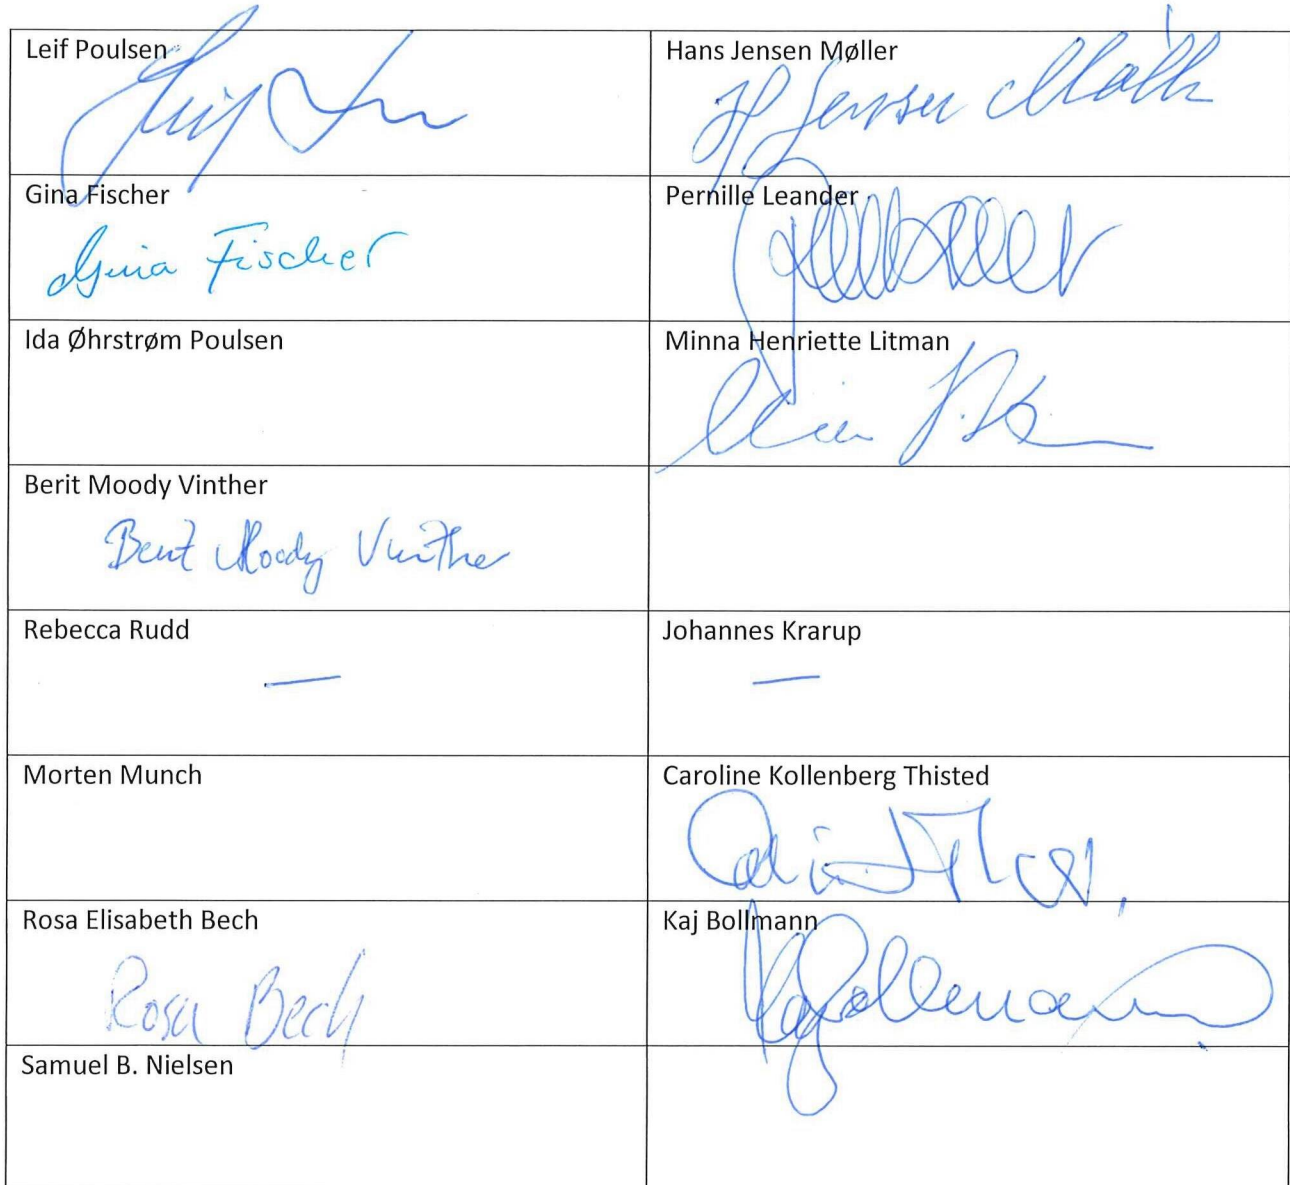 Leif Poulsen
Hans Jensen Møller
H Jensen Møller
Gina Fischer
Gina Fischer
Pernille Leander
Ida Øhrstrøm Poulsen
Minna Henriette Litman
Berit Moody Vinther
Berit Moody Vinther
Rebecca Rudd
—
Johannes Krarup
—
Morten Munch
Caroline Kollenberg Thisted
Rosa Elisabeth Bech
Rosa Bech
Kaj Bollmann
Kaj Bollmann
Samuel B. Nielsen